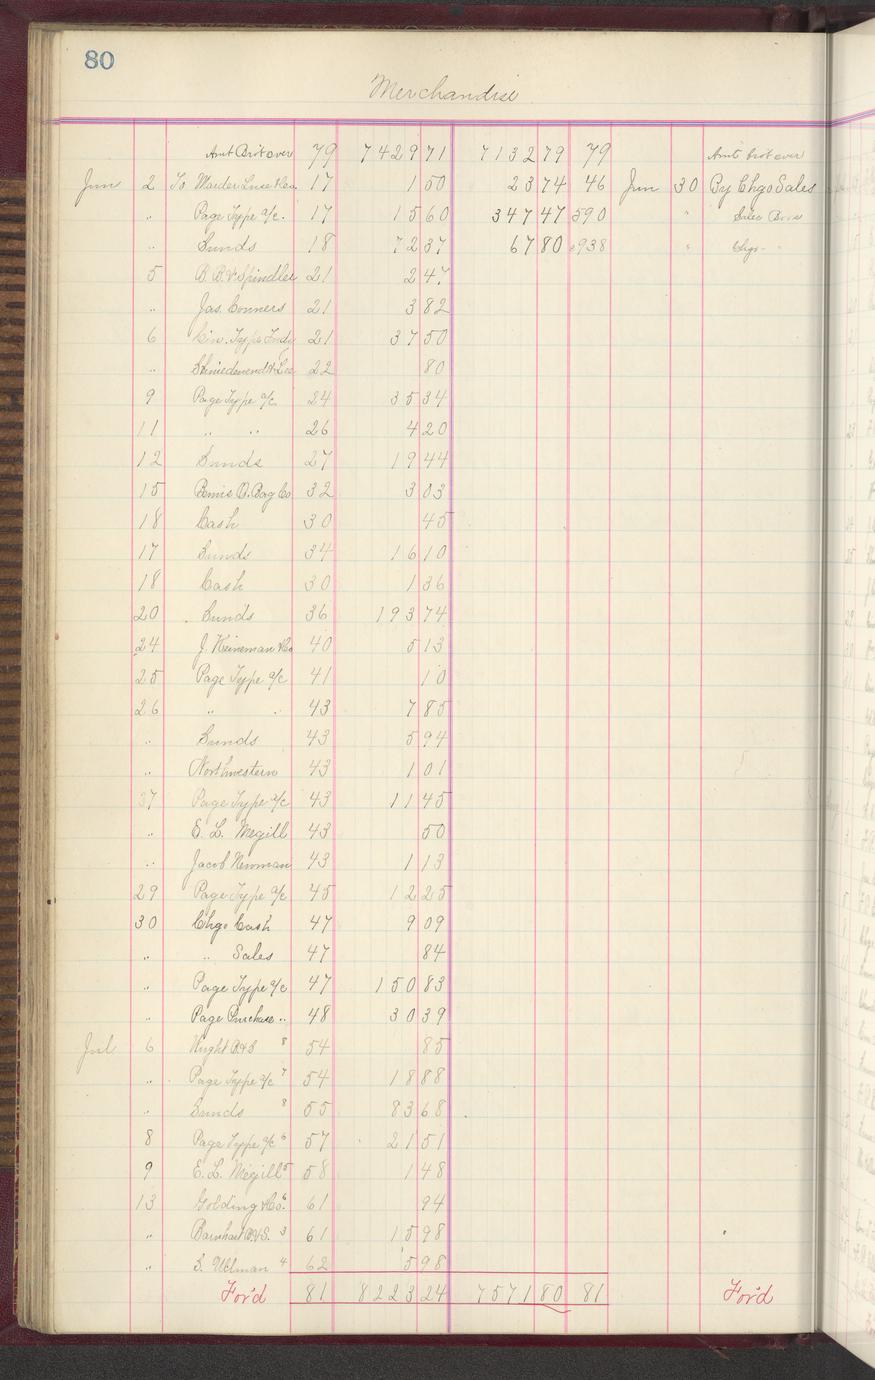 80
Merchandise
Amt Bro't over 79 7429 71 7132 79 79 Amt bro't over
Jun 2 To Marder Luse & Co. 17 1 50 23 74 46 Jun 30 By Chgo Sales
" Page Type a/c. 17 15 60 347 47 590 " Sales
" Sunds 18 72 37 67 80 938 " Chgo "
5 B. B. & Spindler 21 2 47
" Jas. Conners 21 3 82
6 Cin. Type Fndy 21 37 50
" 22 80
9 Page Type a/c 24 35 34
11 " " 26 4 20
12 Sunds 27 19 44
15 Bemis O. Bag Co 32 3 03
18 Cash 30 45
17 Sunds 34 16 10
18 Cash 30 1 36
20 Sunds 36 193 74
24 J. Heineman & Co 40 5 13
25 Page Type a/c 41 10
26 " " 43 7 85
" Sunds 43 5 94
" Northwestern 43 1 01
27 Page Type a/c 43 11 45
" E. L. Megill 43 50
" Jacob Newman 43 1 13
29 Page Type a/c 45 12 25
30 Chgo Cash 47 9 09
" " Sales 47 84
" Page Type a/c 47 150 83
" Page Purchase " 48 30 39
Jul 6 Wright B & S 8 54 85
" Page Type a/c 7 54 18 88
" Sunds 8 55 83 68
8 Page Type a/c 6 57 21 51
9 E. L. Megill 5 58 1 48
13 Golding & Co. 6 61 94
" Barnhart B. & S. 3 61 15 98
" S. Ullman 4 62 5 98
For'd 81 8223 24 7571 80 81 For'd